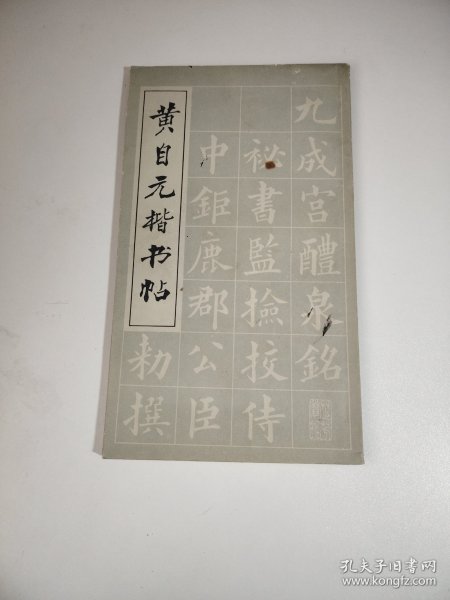 黄自元楷书帖
九成宫醴泉銘
秘書監撿挍侍
中鉅鹿郡公臣
勅撰
孔夫子旧书网
www.kongfz.com